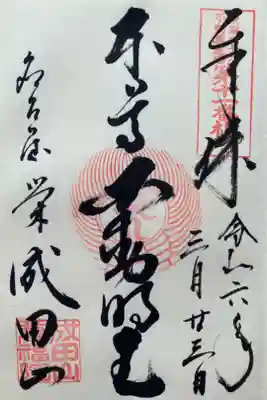 奉拝
令和六年
三月廿三日
本尊
不動明王
名古屋
栄
成田山